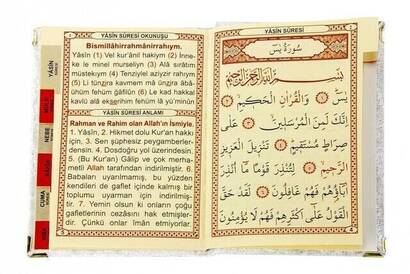 YÂSİN SÛRESİ OKUNUŞU
Bismillâhirrahmânirrahıym.
Yâsîn (1) Vel kur'ânil hakiym (2) İnne-
ke le minel murseliyn (3) Alâ sırâtım
müstekıym (4) Tenziylel aziyzir rahıym
(5) Li tünzira kavmem mâ ünzira âbâ-
ühüm fehüm ğâfilûn (6) Le kad hakkal
kavlü alâ ekserihim fehüm lâ yü'minûn
YÂSİN SÛRESİ ANLAMI
Rahman ve Rahim olan Allah'ın İsmiyle.
1. Yâsîn, 2. Hikmet dolu Kur'an hakkı
için, 3. Sen şüphesiz peygamberler-
densin. 4. Dosdoğru yol üzerindesin.
5. (Bu Kur'an) Gâlip ve çok merha-
metli Allah tarafından indirilmiştir. 6.
Babaları uyarılmamış, bu yüzden
kendileri de gaflet içinde kalmış bir
toplumu uyarman için indirilmiş-
tir. 7. Yemin olsun ki onların çoğu
gafletlerinin cezasını hak etmişler-
dir. Çünkü onlar îman etmiyorlar.
5
YÂSİN
MÜLK
NEBE
CUMA
YÂSİN SÛRESİ
سُورَةُ يٰسٓ
بِسْمِ اللّٰهِ الرَّحْمٰنِ الرَّحِيمِ
يٰسٓ ﴿١﴾ وَالْقُرْاٰنِ الْحَكِيمِ ﴿٢﴾
اِنَّكَ لَمِنَ الْمُرْسَلِينَ ﴿٣﴾ عَلٰى
صِرَاطٍ مُسْتَقِيمٍ ﴿٤﴾ تَنْزِيلَ الْعَزِيزِ
الرَّحِيمِ ﴿٥﴾ لِتُنْذِرَ قَوْمًا مَٓا اُنْذِرَ
اٰبَٓاؤُهُمْ فَهُمْ غَافِلُونَ ﴿٦﴾ لَقَدْ حَقَّ
الْقَوْلُ عَلٰٓى اَكْثَرِهِمْ فَهُمْ لَا يُؤْمِنُونَ
4